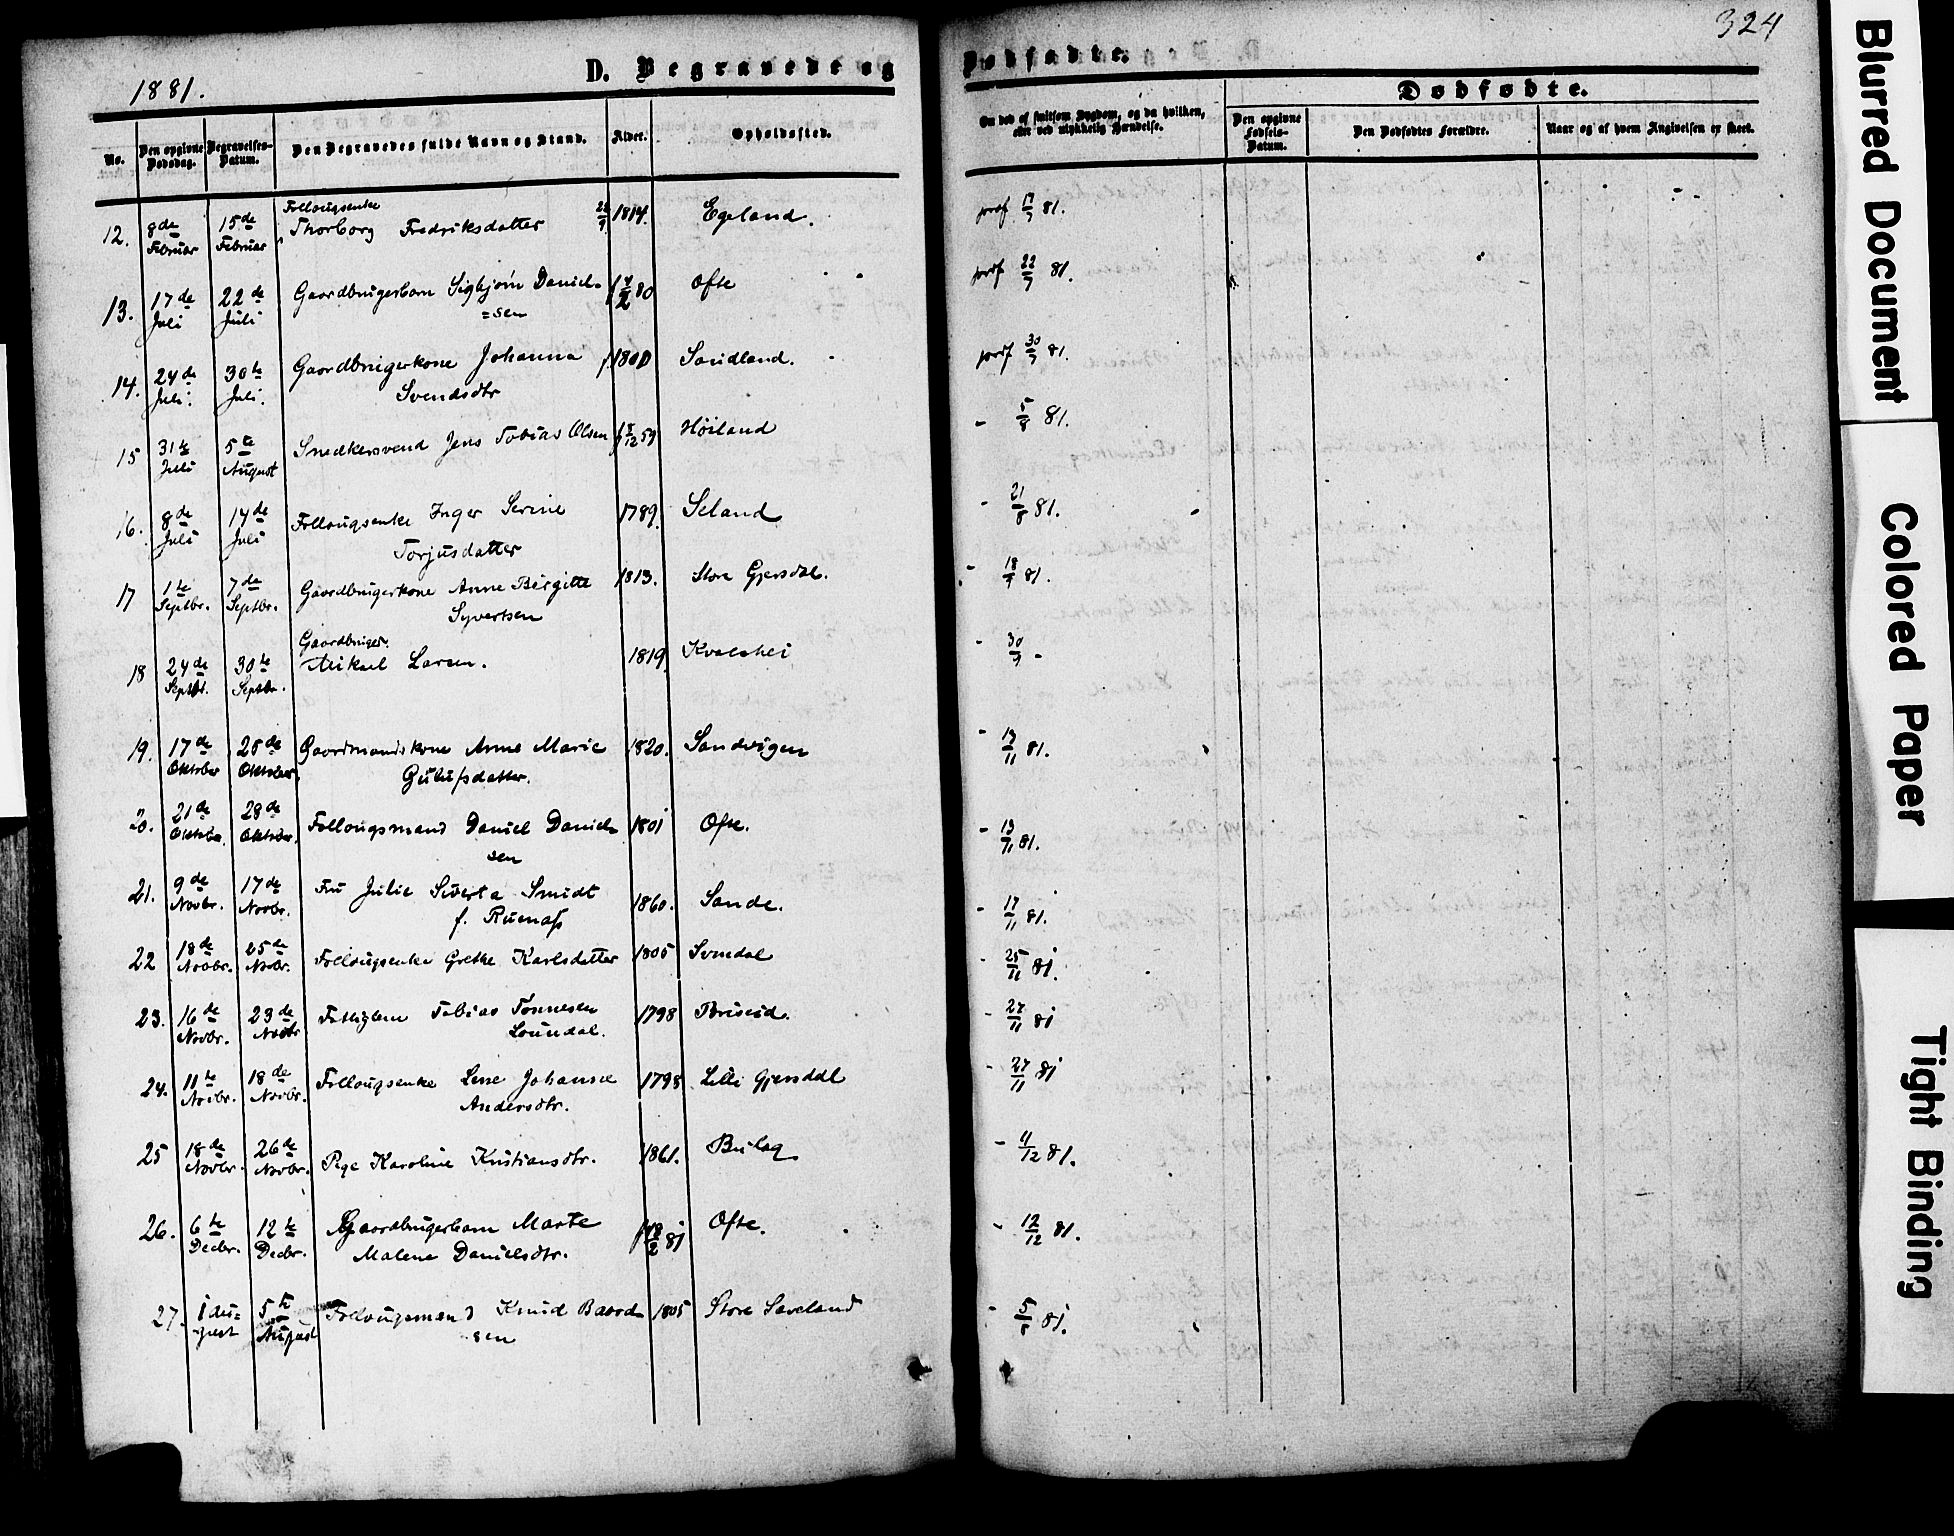 1881.
D. Begravede og
Dødfødte.
324
No.
Den opgivne Dødsdag.
Begravelses-Datum.
Den Begravedes fulde Navn og Stand.
Alder.
Opholdssted.
Om død af smitsom Sygdom, og da hvilken, eller ved ulykkelig Hændelse.
Dødfødte.
Den opgivne Fødsels-Datum.
Den Dødfødtes Forældre.
Naar og af hvem Angivelsen er skeet.
12. 8de Februar 15de Februar Follougsenke Thorborg Fredriksdatter 1814. Egeland. 81.
13. 17de Juli 22de Juli Gaardbrugerbarn Sigbjørn Daniel=sen 80 Ofte 22/7 81.
14. 24de Juli. 30te Juli. Gaardbrugerkone Johanna Svendsdtr 1800 Sandland. 30/7 81.
15 31te Juli 5te August Snedkersvend Jens Tobias Olsen 59 Høiland - 5/8 81.
16. 8de Juli 14de Juli Follougsenke Inger Serine Torjusdatter 1789. Seland - 21/8 81.
17 1te Septbr. 7de Septbr. Gaardbrugerkone Anne Birgitte Syvertsen 1813. Store Gjersdal. - 81.
18 24de Septbr. 30te Septbr. Gaardbruger. Mikael Larsen. 1819. Kvaleshei - 30/9 -
19. 17de Oktober 28de Oktober. Gaardmandskone Anne Marie Gulufsdatter. 1820. Sandvigen - 13/11 81.
20. 21de Oktober. 28de Oktober. Follougsmand Daniel Danielsen 1801 Ofte. - 13/11 81.
21. 9de Novbr. 17de Novbr. Fru Julie Siverta Smidt f. 1860. Sande. - 17/11 81.
22 18de Novbr. 25de Novbr. Follougsenke Grethe Karlsdatter 1805 Svindal - 25/11 81.
23. 16de Novbr. 23de Novbr Fattiglem Tobias Tønnesen 1798 Briseid. - 27/11 81
24. 11te Novbr. 18de Novbr. Follougsenke Lene Johanne Andersdtr. 1798 Lille Gjersdal - 27/11 81
25 18de Novbr. 26de Novbr. Pige Karoline Kristiansdtr. 1861. - 4/12 81.
26. 6te Decbr. 12te Decbr. Gaardbrugerbarn Marte Malene Danielsdtr. 81 Ofte. - 12/12 81.
27. 1 August 5te August Follougsmand Knud Baardsen 1805 Store Saveland - 5/8 81.
Blurred Document
Colored Paper
Tight Binding